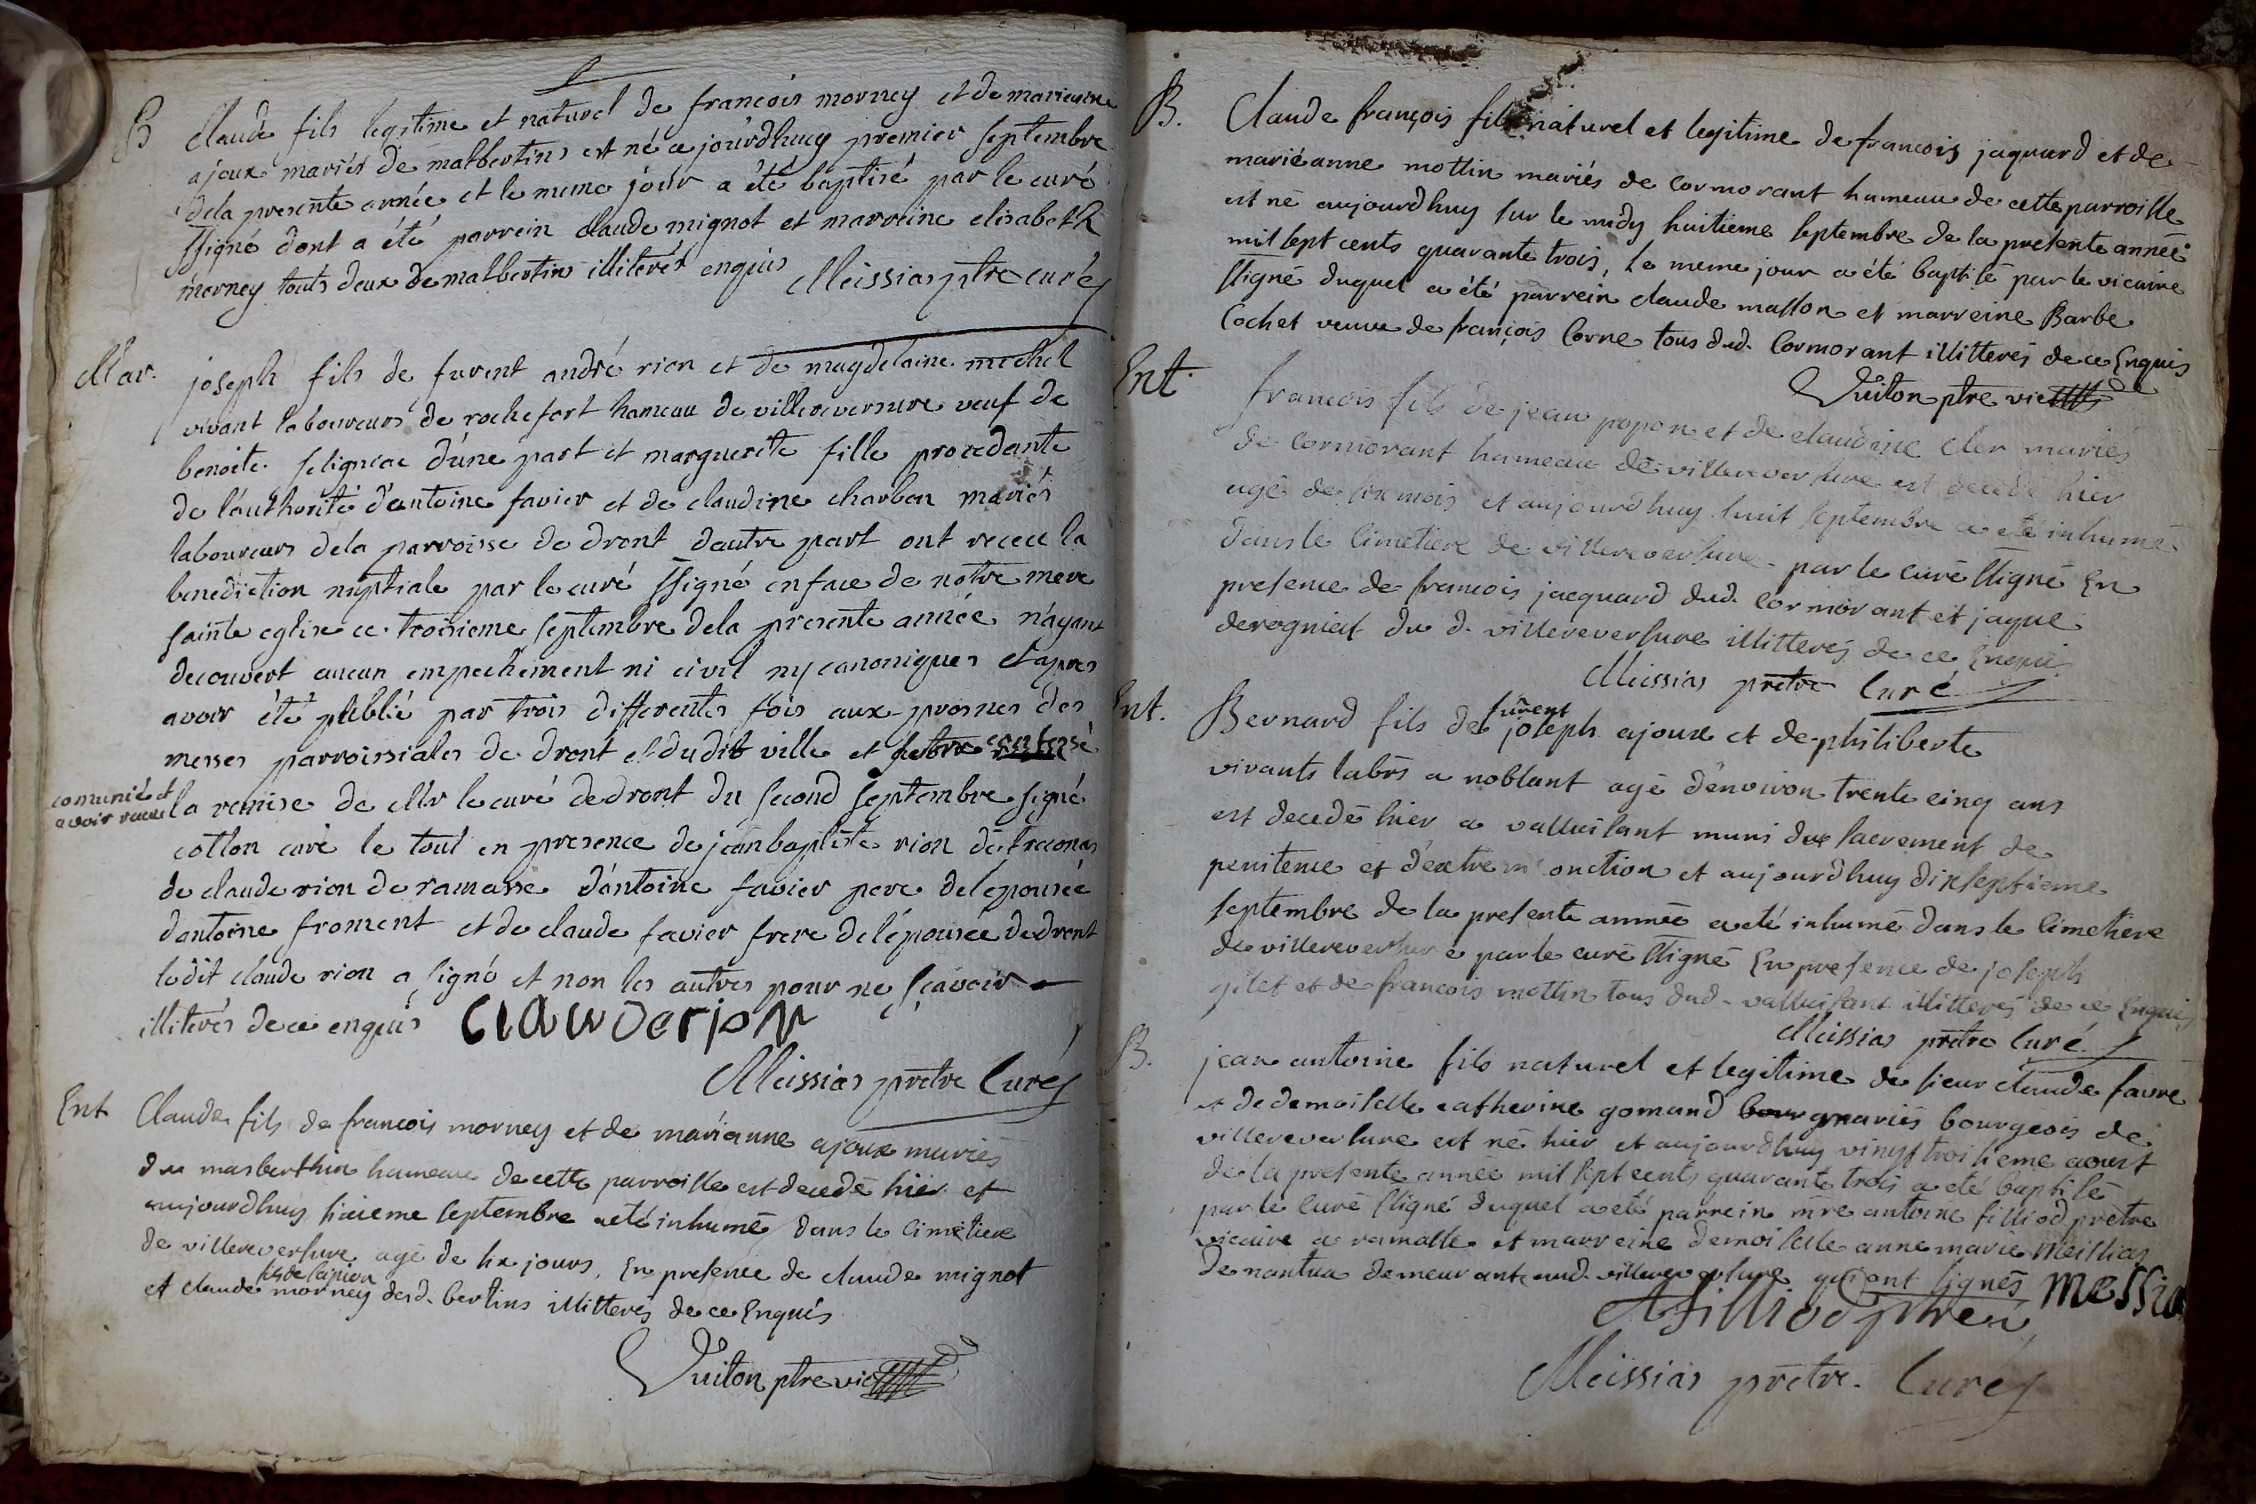 B
Claude fils legitime et naturel de francois morney et de marieanne
ajoux mariés de malbertins est né ajourdhuy premier septembre
dela presente année et le meme jour a été baptisé par le curé
ssigné dont a été parrein claude mignot et marreine elisabeth
morney touts deux de malbertins illiterés enquis Meissias ptre curé
Mar.
joseph fils de furent andré rion et de magdelaine michel
vivant laboureurs de rochefort hameau de villereversure veuf de
benoite d'une part et marguerite fille procedante
de l'authorité d'antoine favier et de claudine charbon mariés
laboureurs dela parroisse de dront dautre part ont receu la
benediction nuptiale par le curé ssigné en face de notre mere
sainte eglise ce troisieme septembre dela presente année n'ayant
decouvert aucun empechement ni civil ny canoniques et apres
avoir été publié par trois differentes fois aux prosnes des
messes parroissiales de dront et dudit ville et
comunié et
avoir receu
la remise de Mr le curé de dront du second septembre signé
cotton curé le tout en presence de jean baptiste rion de treconas
de claude rion de ramasse d'antoine favier pere de lepousée
d'antoine froment et de claude favier frere de lépousée de dront
ledit claude rion a signé et non les autres pour ne sçavoir
illiterés de ce enquis Claude rion
Meissias pretre Curé
Ent
Claude fils de francois morney et de marianne ajoux mariés
du masberthin hameau de cette parroisse est decedé hier et
aujourdhuy sixieme septembre a eté inhumé dans le cimetiere
de villereversure agé de six jours. En presence de claude mignot
et claude morney desd. bertins illitterés de ce Enquis
Vuiton ptre vic
B.
Claude françois fils naturel et legitime de francois jaquard et de
marieanne mottin mariés de Cormorant hameau de cette parroisse
est né aujourdhuy sur le midy huitieme septembre de la presente année
mil sept cents quarante trois, le meme jour a été baptisé par le vicaire
ssigné duquel a été parrein claude masson et marreine Barbe
Cochet veuve de françois Corne tous dud. Cormorant illitterés de ce Enquis
Vuiton ptre vic
Ent.
francois fils de jean popon et de claudine cler mariés
de Cormorant hameau de villereversure est decedé hier
agé de six mois et aujourdhuy huit septembre a eté inhumé
dans le Cimetiere de villereversure par le curé ssigné En
presence de francois jacquard dud. Cormorant et jaque
derognat du d. villereversure illitterés de ce Enquis
Meissias pretre Curé
Ent.
Bernard fils de furent joseph ajoux et de philiberte
vivants labrs a noblant agé d'environ trente cinq ans
est decedé hier a valluisant muni du sacrement de
penitence et d'extreme onction et aujourdhuy dixseptieme
septembre de la presente année a eté inhumé dans le Cimetiere
de villereversure par le curé ssigné En presence de joseph
gilet et de francois mottin tous dud. valluisant illitterés de ce Enquis
Meissias pretre Curé
B.
jean antoine fils naturel et legitime de sieur claude favre
et de demoiselle catherine gomand mariés bourgeois de
villereversure est né hier et aujourdhuy vingt troisieme aoust
de la presente année mil sept cents quarante trois a eté baptisé
par le curé ssigné duquel a eté parrein mre antoine filliod pretre
vicaire a ramasse et marreine demoiselle anne marie Meissias
de nantua demeurante aud. villereversure qui ont signés Messia
A filliod ptre
Meissias pretre Curé